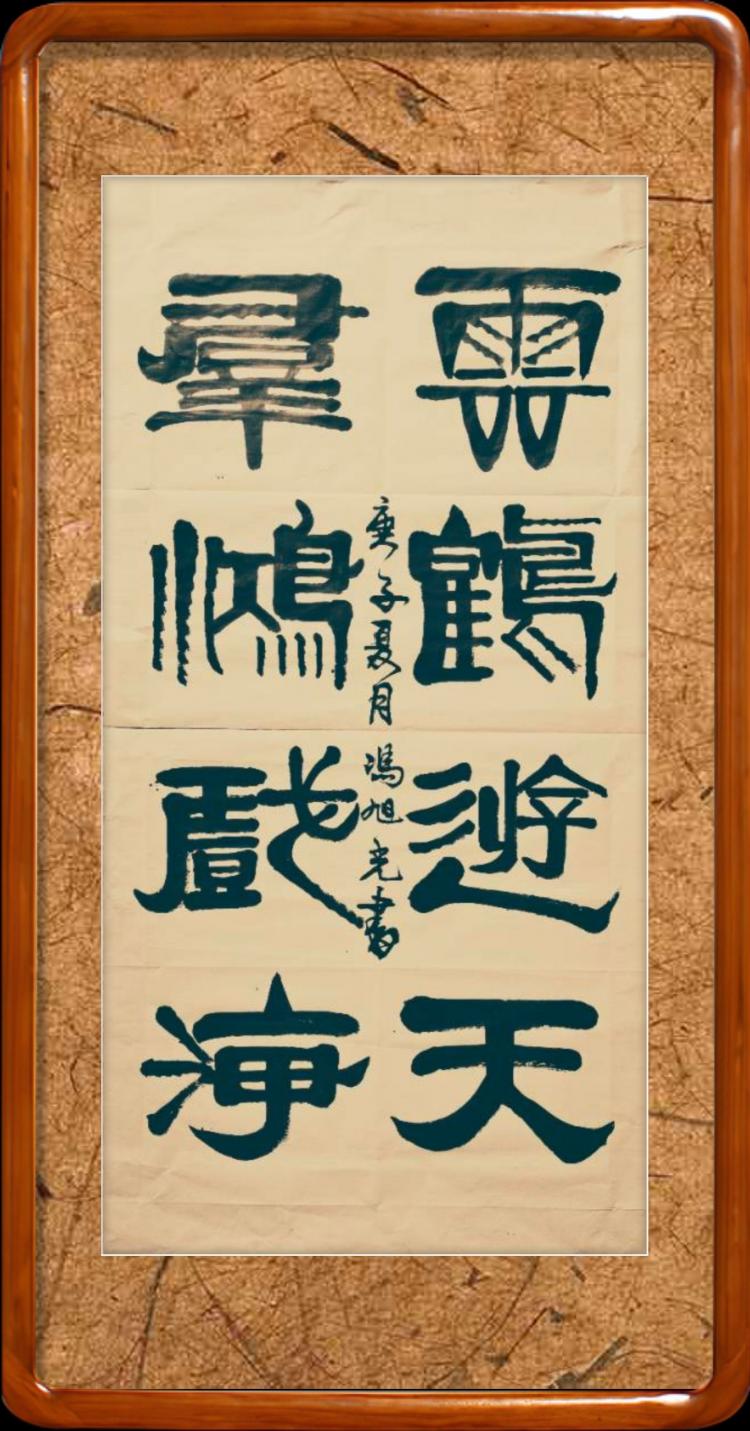 雲鶴遊天
羣鴻戲海
庚子夏月馮旭光書